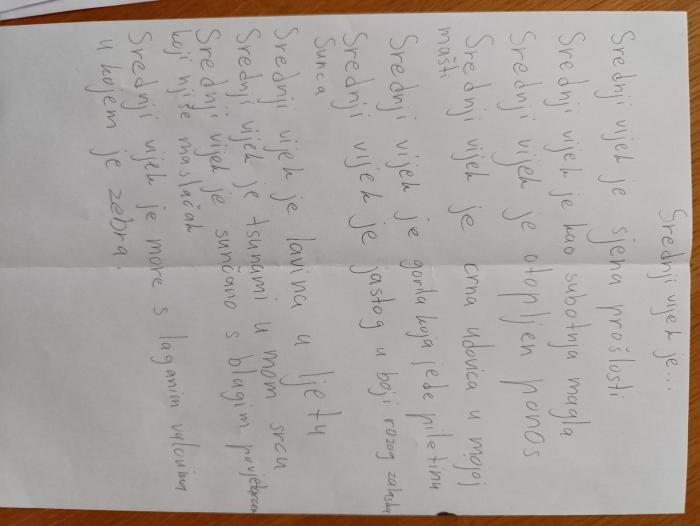 Srednji vijek je...
Srednji vijek je sjena prošlosti
Srednji vijek je kao subotnja magla
Srednji vijek je otopljen ponos
Srednji vijek je crna udovica u mojoj
mašti
Srednji vijek je gorila koja jede piletinu
Srednji vijek je jastog u boji rozog zalaska
sunca
Srednji vijek je lavina u ljetu
Srednji vijek je tsunami u mom srcu
Srednji vijek je sunčano s blagim povjetarcem
koji njiše maslačak
Srednji vijek je more s laganim valovima
u kojem je zebra.